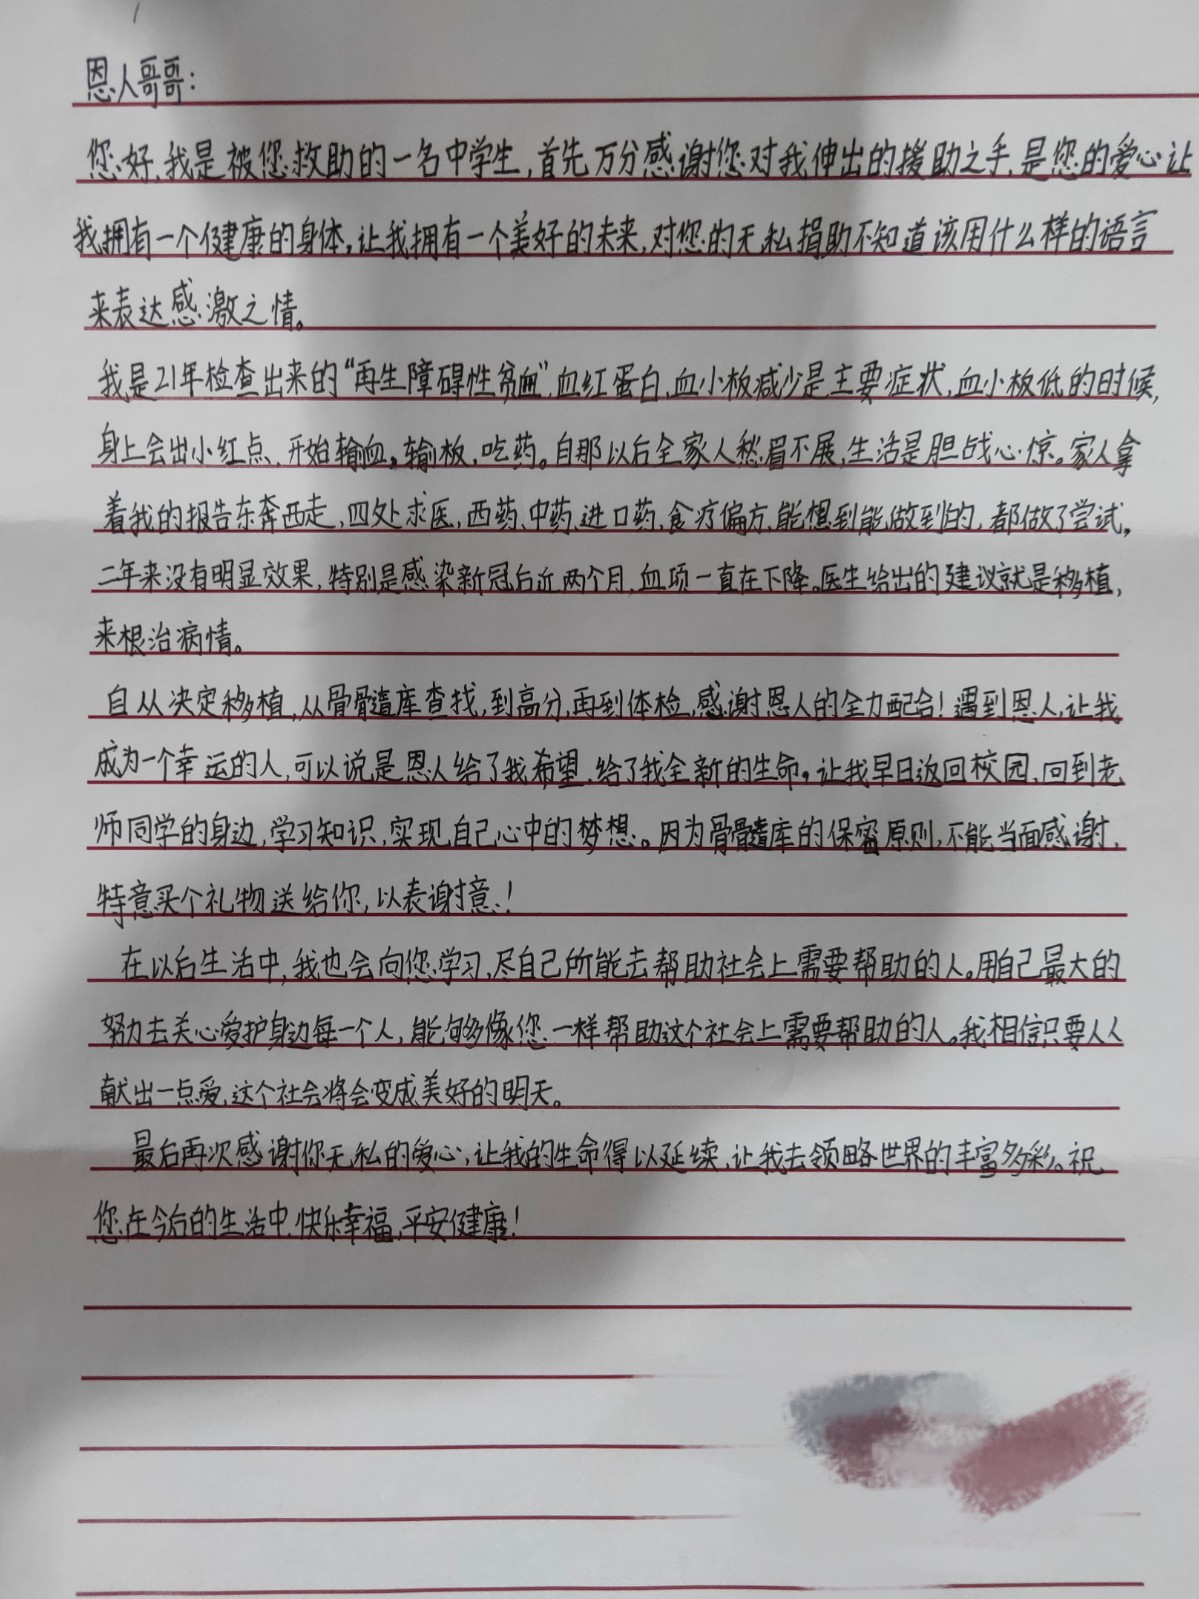 恩人哥哥:
您好,我是被您救助的一名中学生,首先万分感谢您对我伸出的援助之手,是您的爱心让
我拥有一个健康的身体,让我拥有一个美好的未来,对您的无私捐助不知道该用什么样的语言
来表达感激之情。
我是21年检查出来的“再生障碍性贫血”,血红蛋白,血小板减少是主要症状,血小板低的时候,
身上会出小红点、开始输血,输板,吃药。自那以后全家人愁眉不展,生活是胆战心惊。家人拿
着我的报告东奔西走,四处求医,西药、中药、进口药、食疗偏方、能想到能做到的,都做了尝试。
二年来没有明显效果,特别是感染新冠后近两个月,血项一直在下降。医生给出的建议就是移植,
来根治病情。
自从决定移植,从骨髓库查找,到高分,再到体检,感谢恩人的全力配合!遇到恩人,让我
成为一个幸运的人,可以说是恩人给了我希望,给了我全新的生命。让我早日返回校园,回到老
师同学的身边,学习知识,实现自己心中的梦想。因为骨髓库的保密原则,不能当面感谢,
特意买个礼物送给你,以表谢意!
在以后生活中,我也会向您学习,尽自己所能去帮助社会上需要帮助的人。用自己最大的
努力去关心爱护身边每一个人,能够像您一样帮助这个社会上需要帮助的人。我相信只要人人
献出一点爱,这个社会将会变成美好的明天。
最后再次感谢你无私的爱心,让我的生命得以延续,让我去领略世界的丰富多彩。祝
您在今后的生活中,快乐幸福,平安健康!